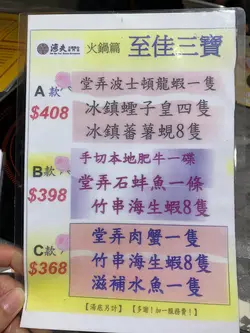 湯夫 火鍋篇 至佳三寶
A款
$408
堂弄波士頓龍蝦一隻
冰鎮蟶子皇四隻
冰鎮蕃薯蜆8隻
B款
$398
手切本地肥牛一碟
堂弄石蚌魚一條
竹串海生蝦8隻
C款
$368
堂弄肉蟹一隻
竹串海生蝦8隻
滋補水魚一隻
【湯底另計】【多謝！加一服務費！】